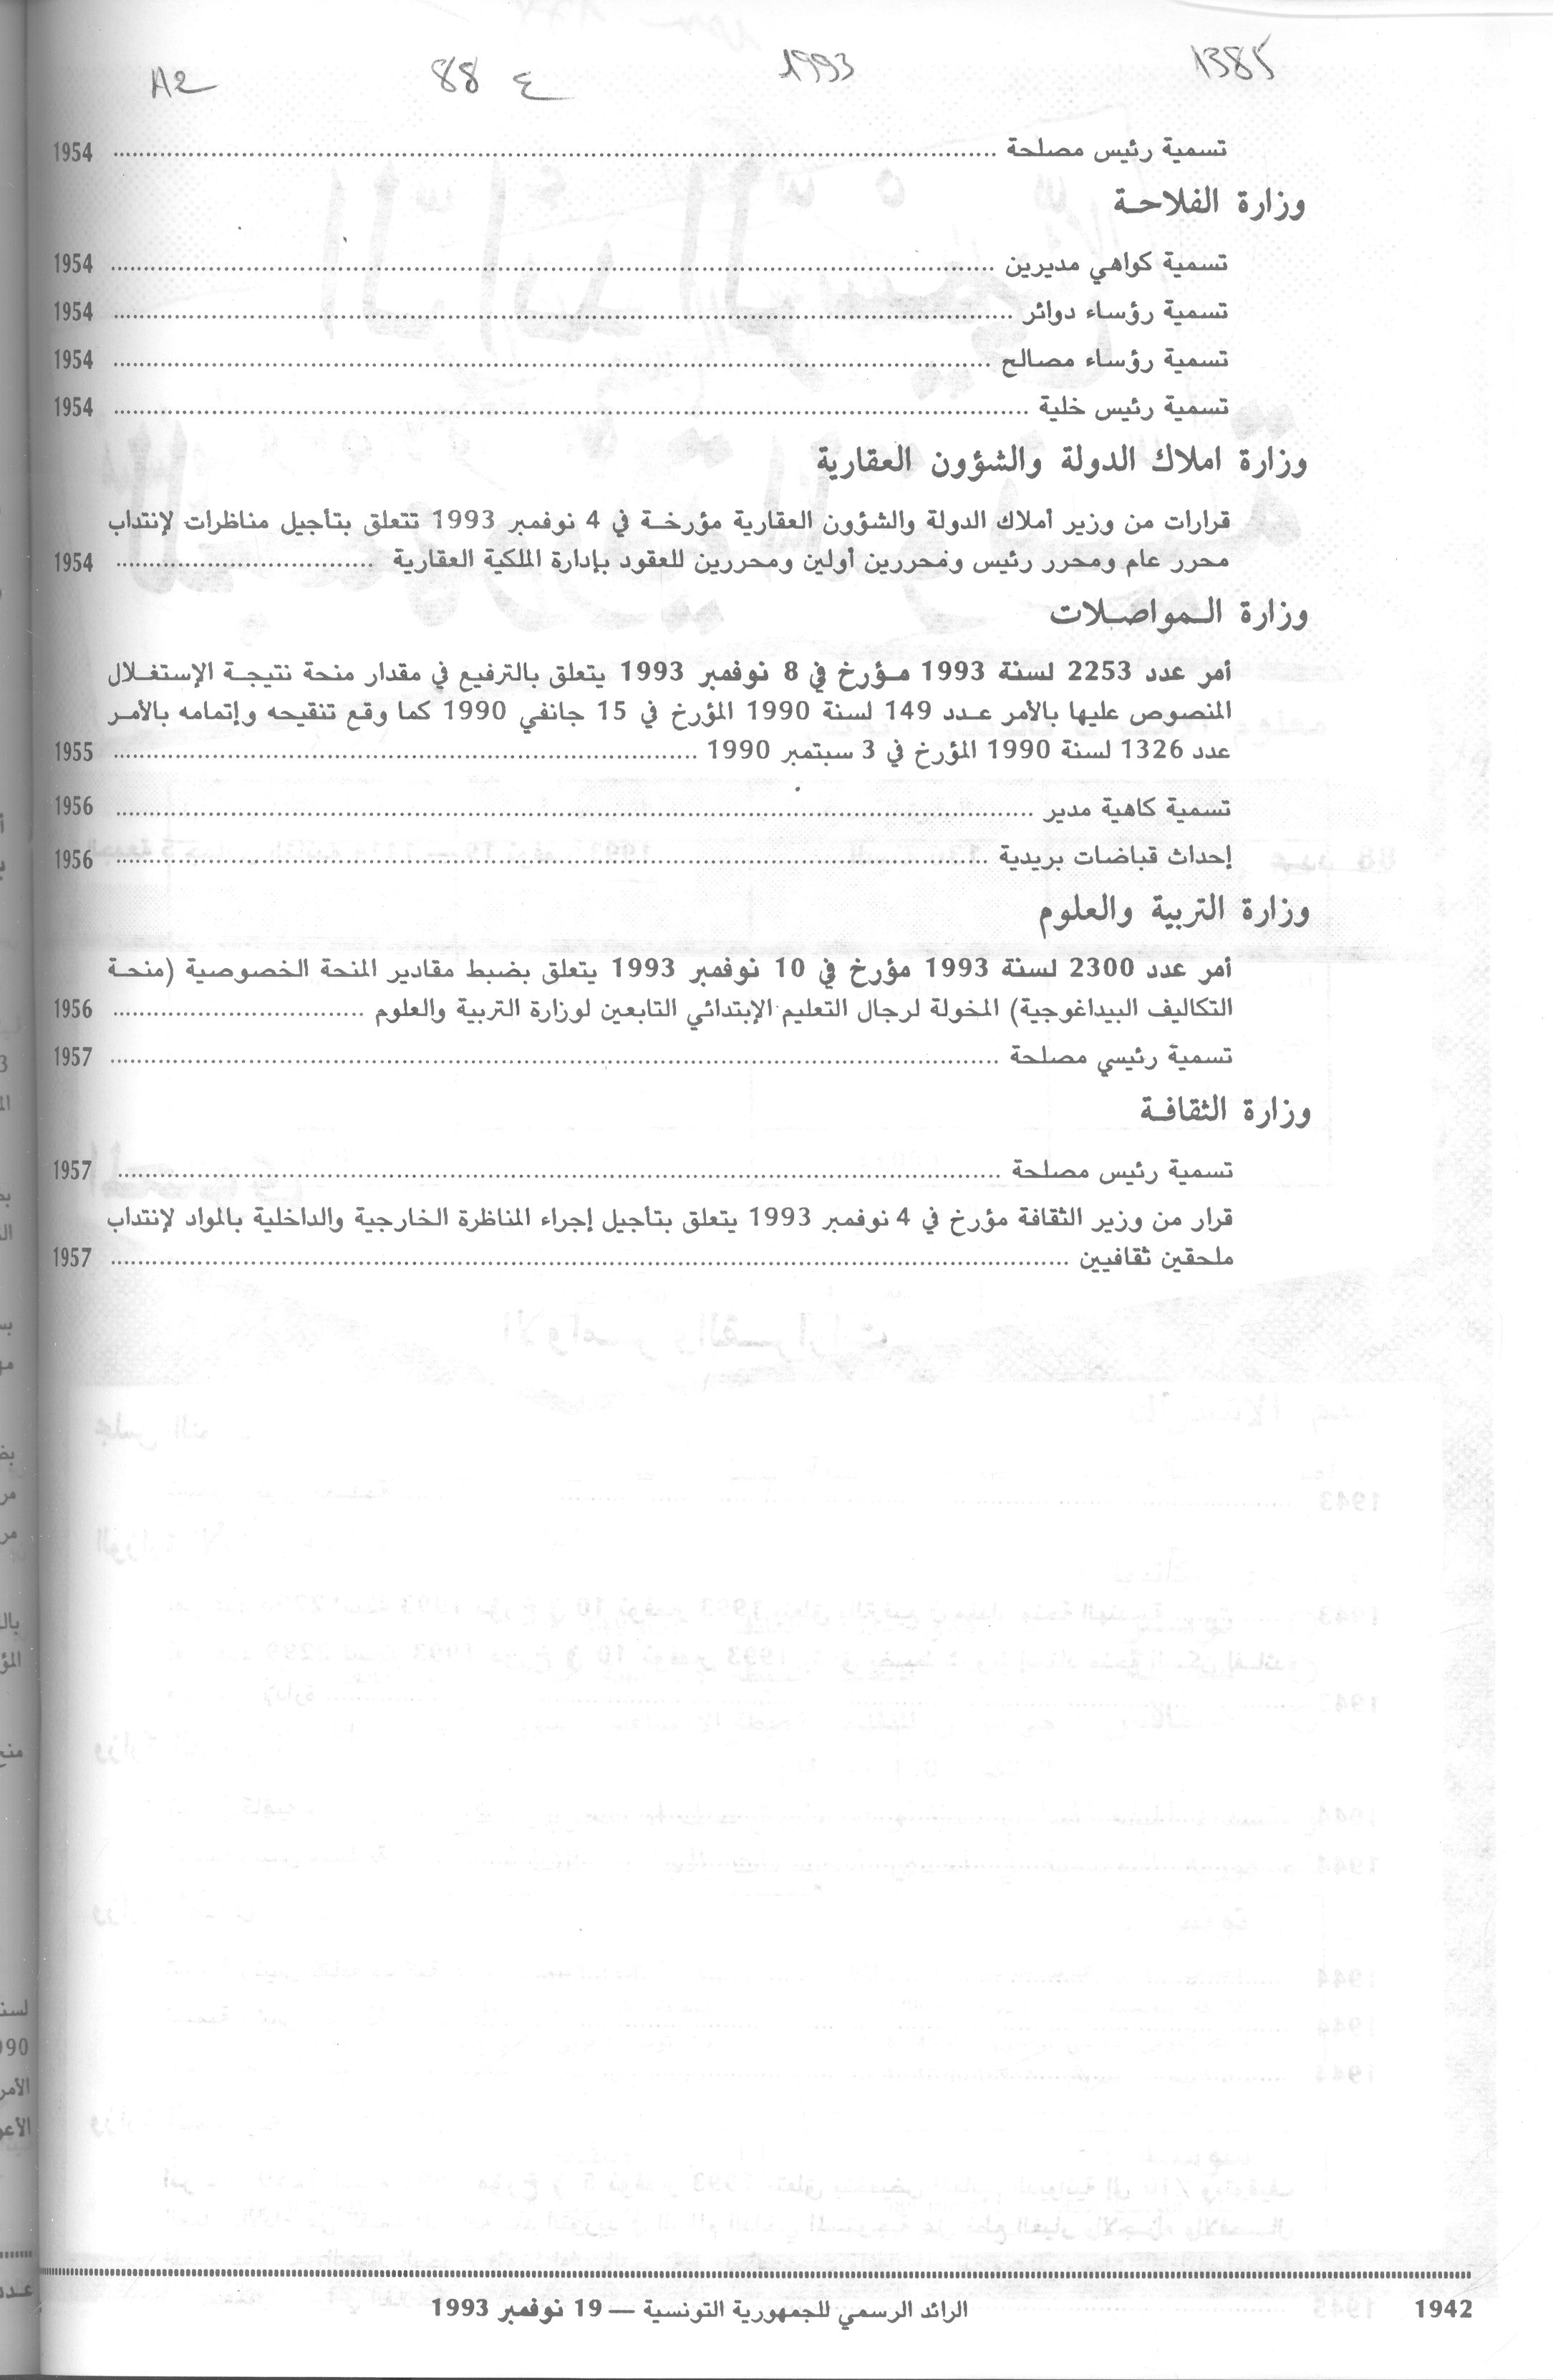 A2 88 ع 1993 1385
تسمية رئيس مصلحة ........ 1954
وزارة الفلاحة
تسمية كواهي مديرين ........ 1954
تسمية رؤساء دوائر ........ 1954
تسمية رؤساء مصالح ........ 1954
تسمية رئيس خلية ........ 1954
وزارة املاك الدولة والشؤون العقارية
قرارات من وزير أملاك الدولة والشؤون العقارية مؤرخة في 4 نوفمبر 1993 تتعلق بتأجيل مناظرات لإنتداب
محرر عام ومحرر رئيس ومحررين أولين ومحررين للعقود بإدارة الملكية العقارية ........ 1954
وزارة المواصلات
أمر عدد 2253 لسنة 1993 مؤرخ في 8 نوفمبر 1993 يتعلق بالترفيع في مقدار منحة نتيجة الإستغلال
المنصوص عليها بالأمر عدد 149 لسنة 1990 المؤرخ في 15 جانفي 1990 كما وقع تنقيحه وإتمامه بالأمر
عدد 1326 لسنة 1990 المؤرخ في 3 سبتمبر 1990 ........ 1955
تسمية كاهية مدير ........ 1956
إحداث قباضات بريدية ........ 1956
وزارة التربية والعلوم
أمر عدد 2300 لسنة 1993 مؤرخ في 10 نوفمبر 1993 يتعلق بضبط مقادير المنحة الخصوصية (منحة
التكاليف البيداغوجية) المخولة لرجال التعليم الإبتدائي التابعين لوزارة التربية والعلوم ........ 1956
تسمية رئيسي مصلحة ........ 1957
وزارة الثقافة
تسمية رئيس مصلحة ........ 1957
قرار من وزير الثقافة مؤرخ في 4 نوفمبر 1993 يتعلق بتأجيل إجراء المناظرة الخارجية والداخلية بالمواد لإنتداب
ملحقين ثقافيين ........ 1957
1942 الرائد الرسمي للجمهورية التونسية — 19 نوفمبر 1993